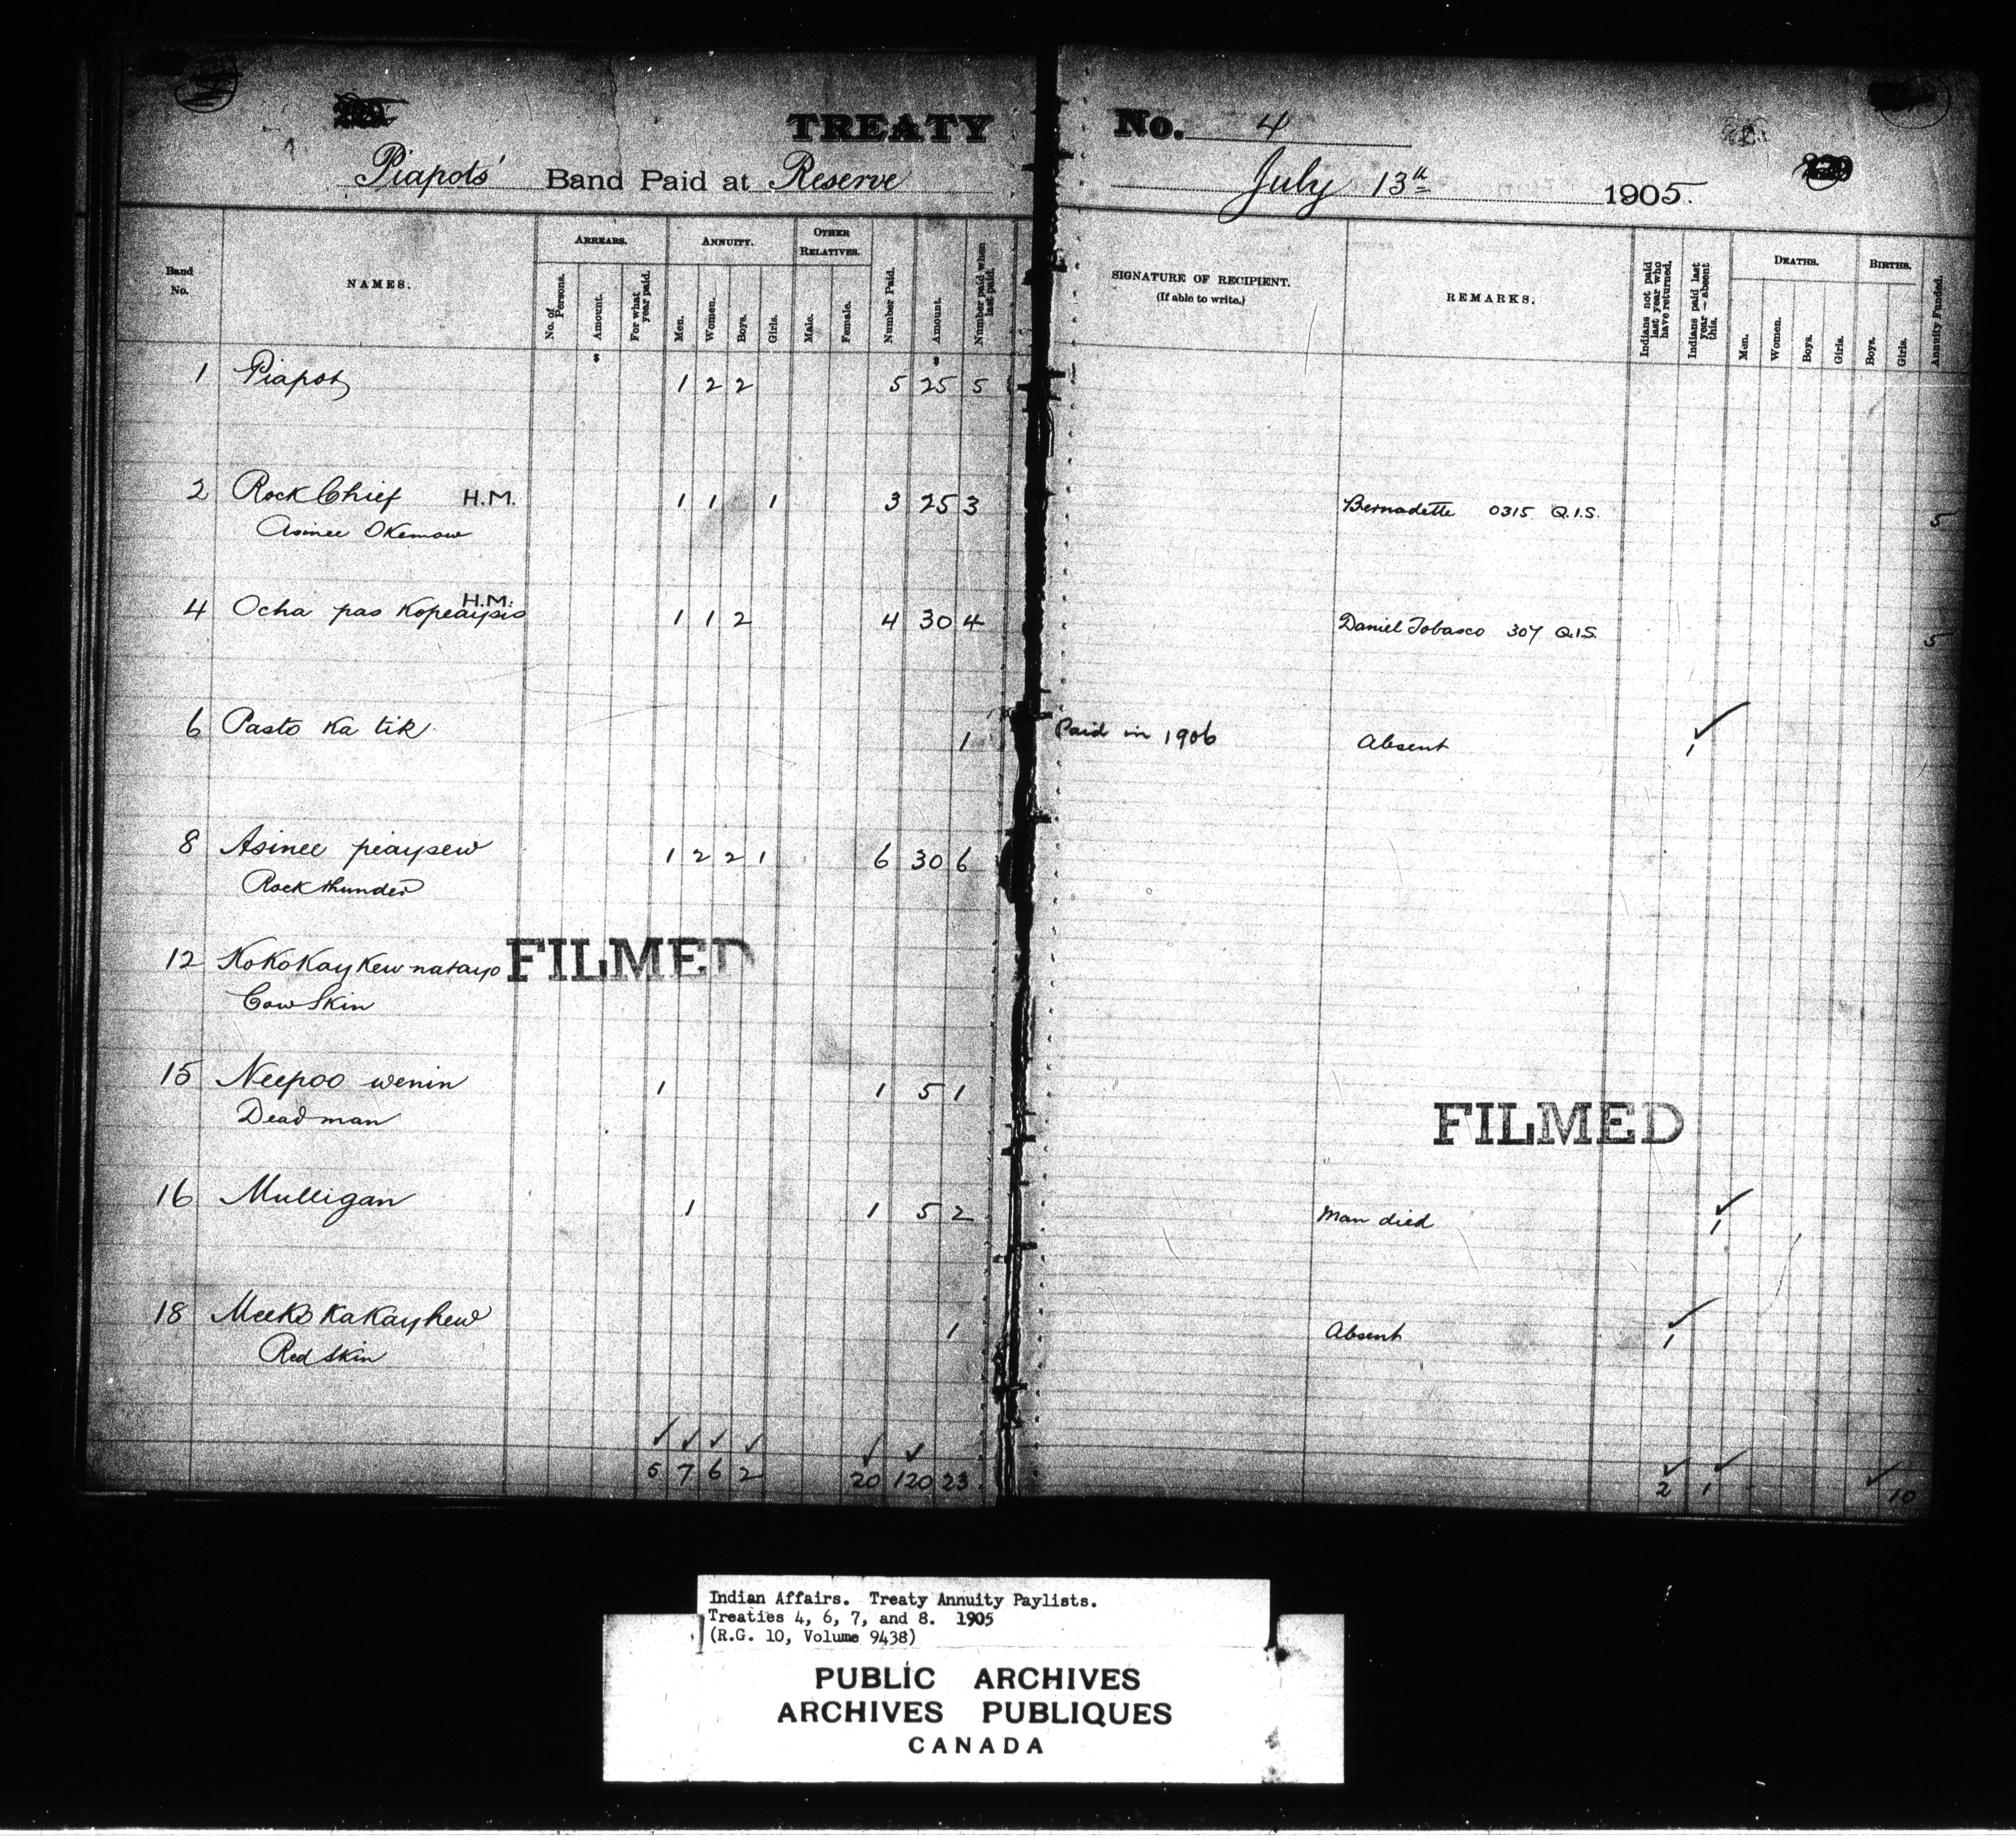 TREATY No. 4
Piapots' Band Paid at Reserve July 13th 1905.
Band No. NAMES. ARREARS. ANNUITY. OTHER RELATIVES. Number Paid. Amount. Number paid when last paid. SIGNATURE OF RECIPIENT. (If able to write.) REMARKS. Indians not paid last year who have returned. Indians paid last year — absent this. DEATHS. BIRTHS. Annuity Funded.
No. of Persons. Amount. For what year paid. Men. Women. Boys. Girls. Male. Female. Men. Women. Boys. Girls. Boys. Girls.
$ $
1 Piapot 1 2 2 5 25 5
2 Rock Chief H.M. 1 1 1 3 25 3 Bernadette 0315 Q.I.S. 5
Asinee Okemow
4 Ocha pas Kopeaysis H.M. 1 1 2 4 30 4 Daniel Tobasco 307 Q.I.S. 5
6 Pasto Ka tik 1 Paid in 1906 Absent 1
8 Asinee peaysew 1 2 2 1 6 30 6
Rock thunder
12 KoKoKay Kew natayo
Cow Skin
FILMED
15 Neepoo wenin 1 1 5 1
Dead man
FILMED
16 Mulligan 1 1 5 2 Man died 1
18 MeeKo KaKayhew 1 Absent 1
Red Skin
5 7 6 2 20 120 23 2 1 10
Indian Affairs. Treaty Annuity Paylists.
Treaties 4, 6, 7, and 8. 1905
(R.G. 10, Volume 9438)
PUBLIC ARCHIVES
ARCHIVES PUBLIQUES
CANADA